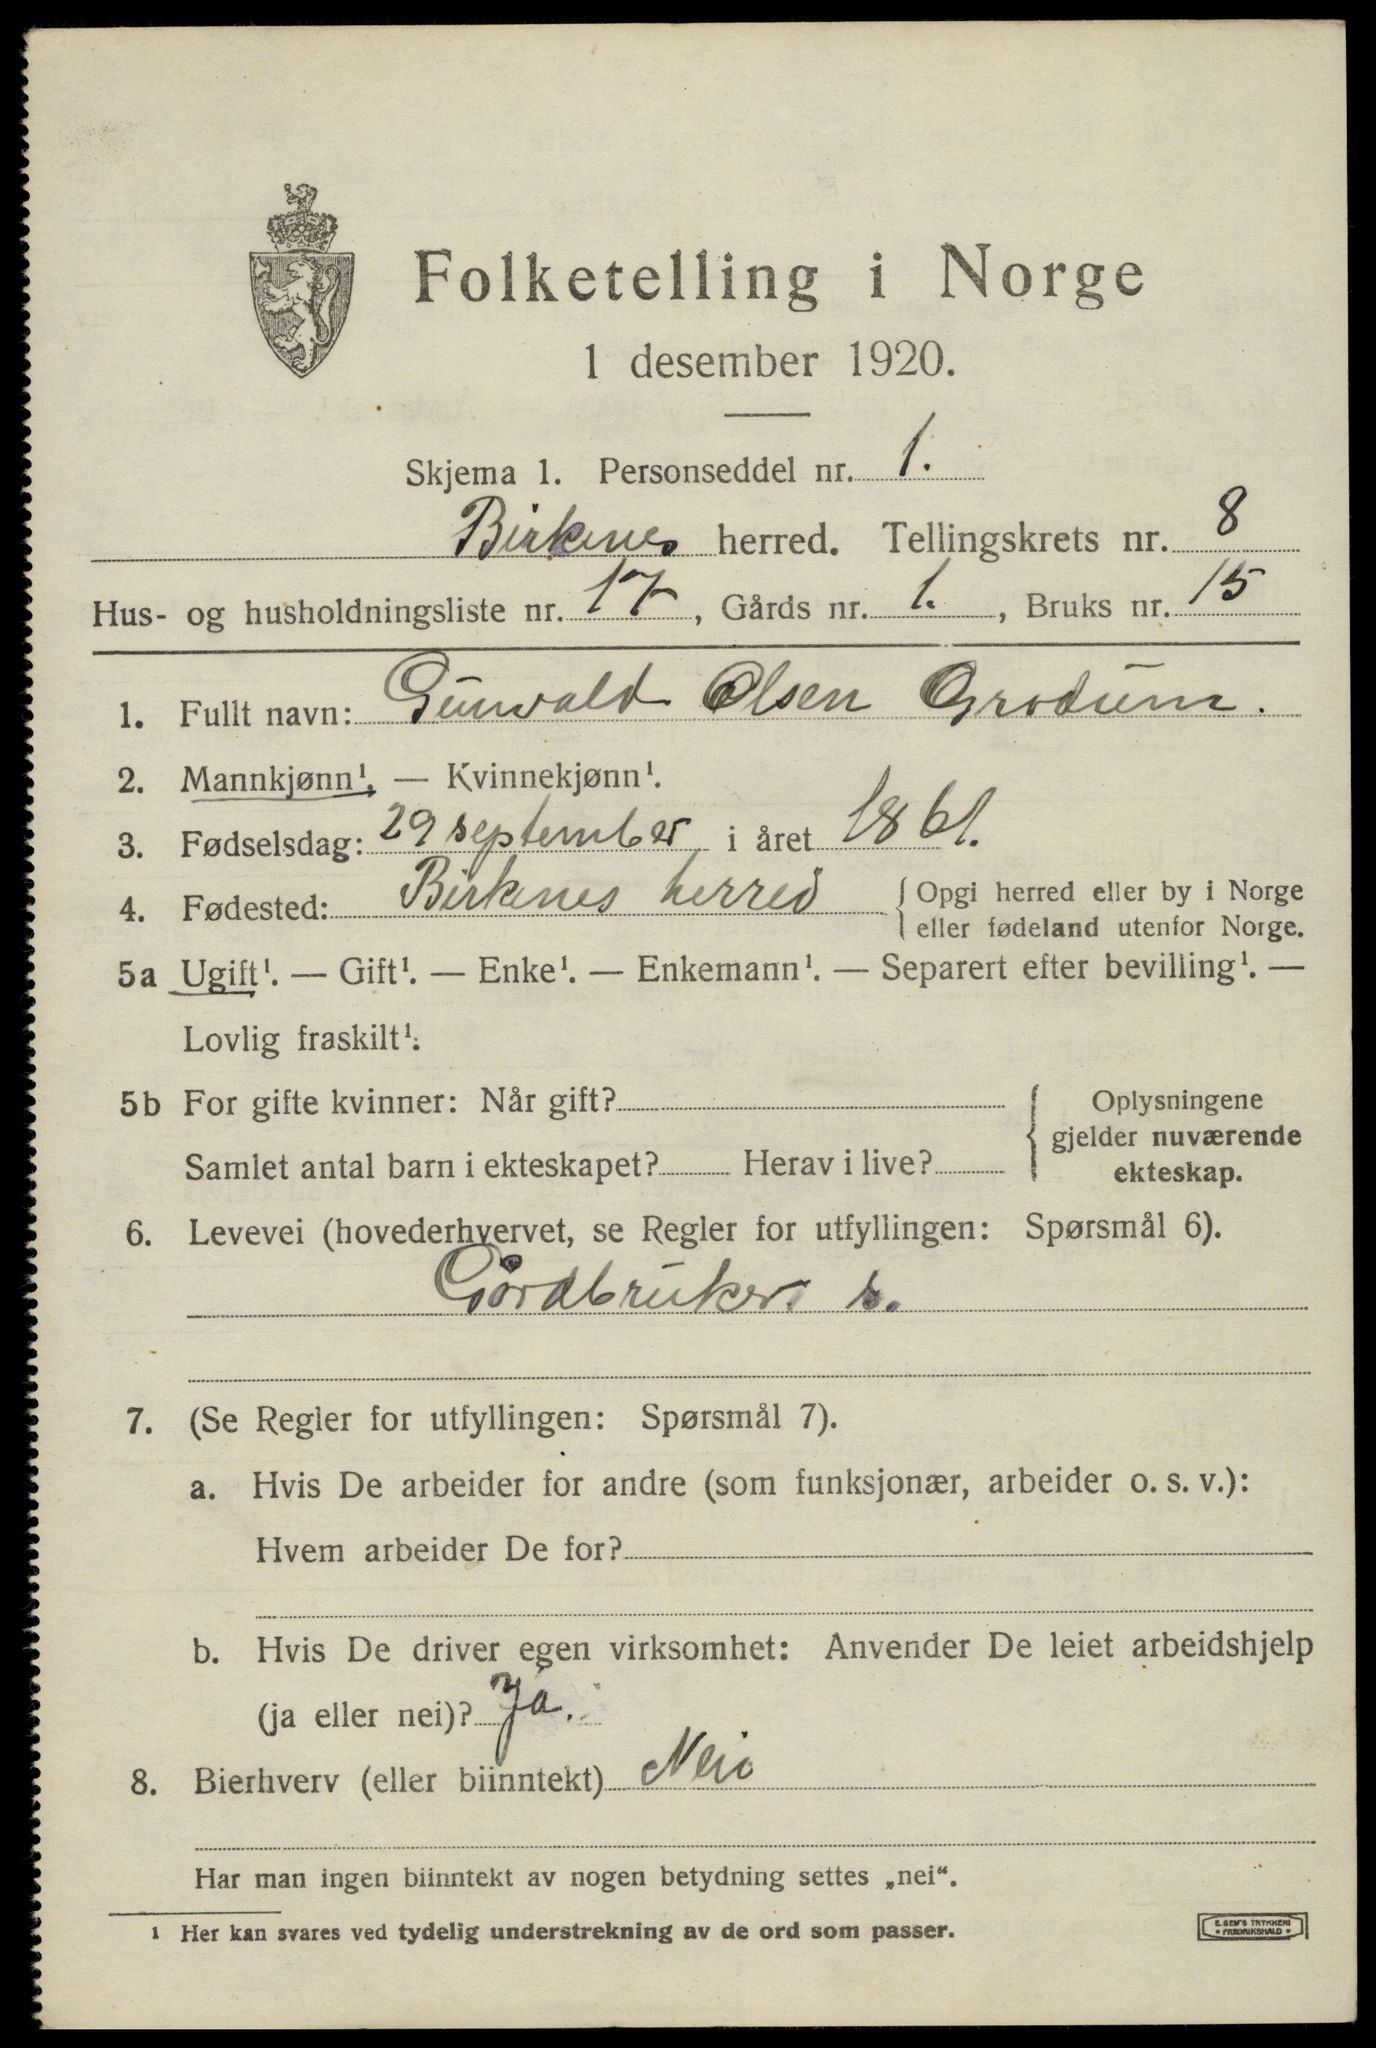 Folketelling i Norge
1 desember 1920.
Skjema 1. Personseddel nr. 1.
Birkenes herred. Tellingskrets nr. 8
Hus- og husholdningsliste nr. 17, Gårds nr. 1., Bruks nr. 15
1. Fullt navn: Gunvald Olsen Grodum.
2. Mannkjønn¹. — Kvinnekjønn¹.
3. Fødselsdag: 29 september i året 1861.
4. Fødested: Birkenes herred { Opgi herred eller by i Norge
eller fødeland utenfor Norge.
5a Ugift¹. — Gift¹. — Enke¹. — Enkemann¹. — Separert efter bevilling¹. —
Lovlig fraskilt¹.
5b For gifte kvinner: Når gift? { Oplysningene
gjelder nuværende
Samlet antal barn i ekteskapet? Herav i live?
ekteskap.
6. Levevei (hovederhvervet, se Regler for utfyllingen: Spørsmål 6).
Gårdbruker s.
7. (Se Regler for utfyllingen: Spørsmål 7).
a. Hvis De arbeider for andre (som funksjonær, arbeider o. s. v.):
Hvem arbeider De for?
b. Hvis De driver egen virksomhet: Anvender De leiet arbeidshjelp
(ja eller nei)? Ja.
8. Bierhverv (eller biinntekt) Nei
Har man ingen biinntekt av nogen betydning settes „nei“.
¹ Her kan svares ved tydelig understrekning av de ord som passer.
E. SEM'S TRYKKERI
* FREDRIKSHALD *